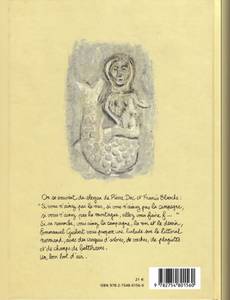 On se souvient du slogan de Pierre Dac et Francis Blanche :
"Si vous n'aimez pas la mer, si vous n'aimez pas la campagne,
si vous n'aimez pas la montagne, allez vous faire f... "
Si au contraire, vous aimez la campagne, la mer et le dessin,
Emmanuel Guibert vous propose une balade sur le littoral
normand, avec des croquis d'arbres, de vaches, de plagistes
et de champs de betteraves.
Un bon bol d'air.
21 €
ISBN 978-2-7548-0156-0
9 782754 801560